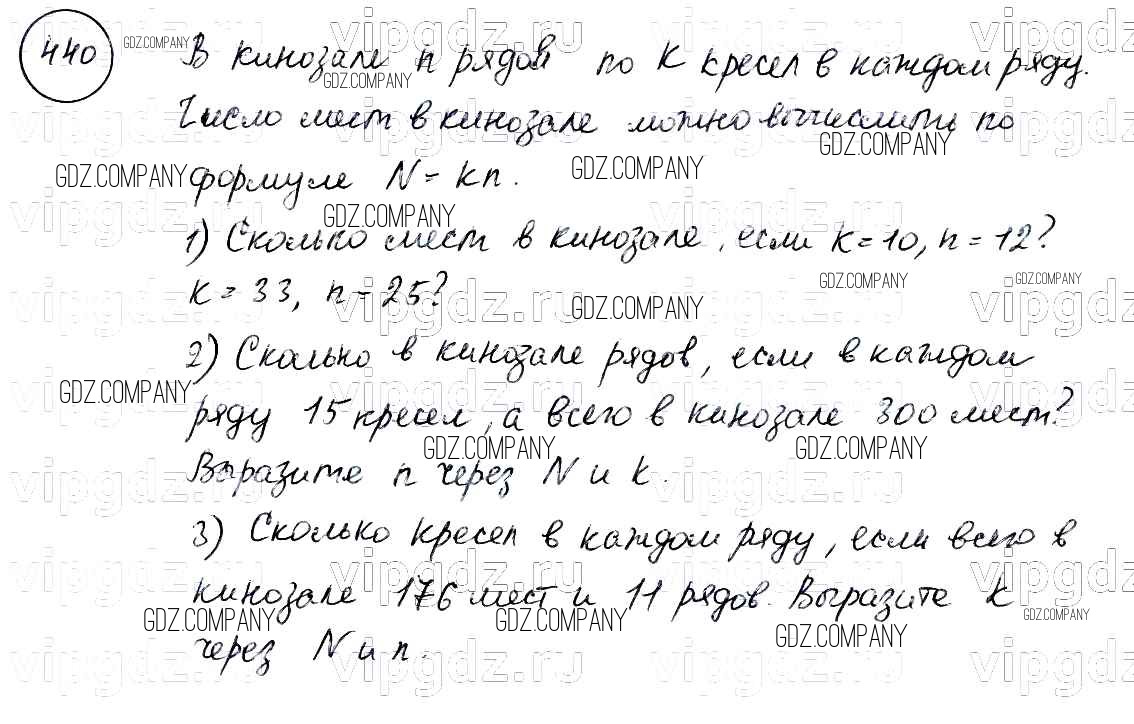 440 В кинозале n рядов по K кресел в каждом ряду.
Число мест в кинозале можно вычислить по
формуле N = kn.
1) Сколько мест в кинозале, если k = 10, n = 12?
k = 33, n = 25?
2) Сколько в кинозале рядов, если в каждом
ряду 15 кресел, а всего в кинозале 300 мест?
Выразите n через N и k.
3) Сколько кресел в каждом ряду, если всего в
кинозале 176 мест и 11 рядов. Выразите k
через N и n.